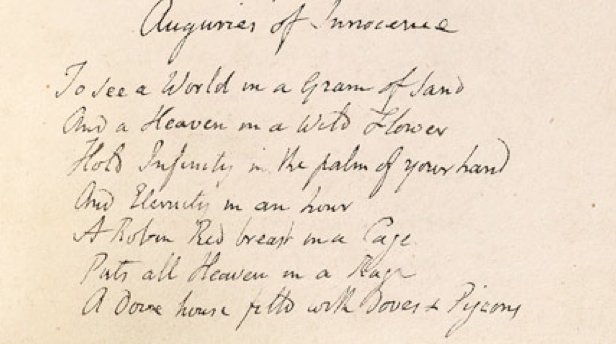 Auguries of Innocence
To see a World in a Grain of Sand
And a Heaven in a Wild Flower
Hold Infinity in the palm of your hand
And Eternity in an hour
A Robin Red breast in a Cage
Puts all Heaven in a Rage
A Dove house filld with Doves & Pigeons